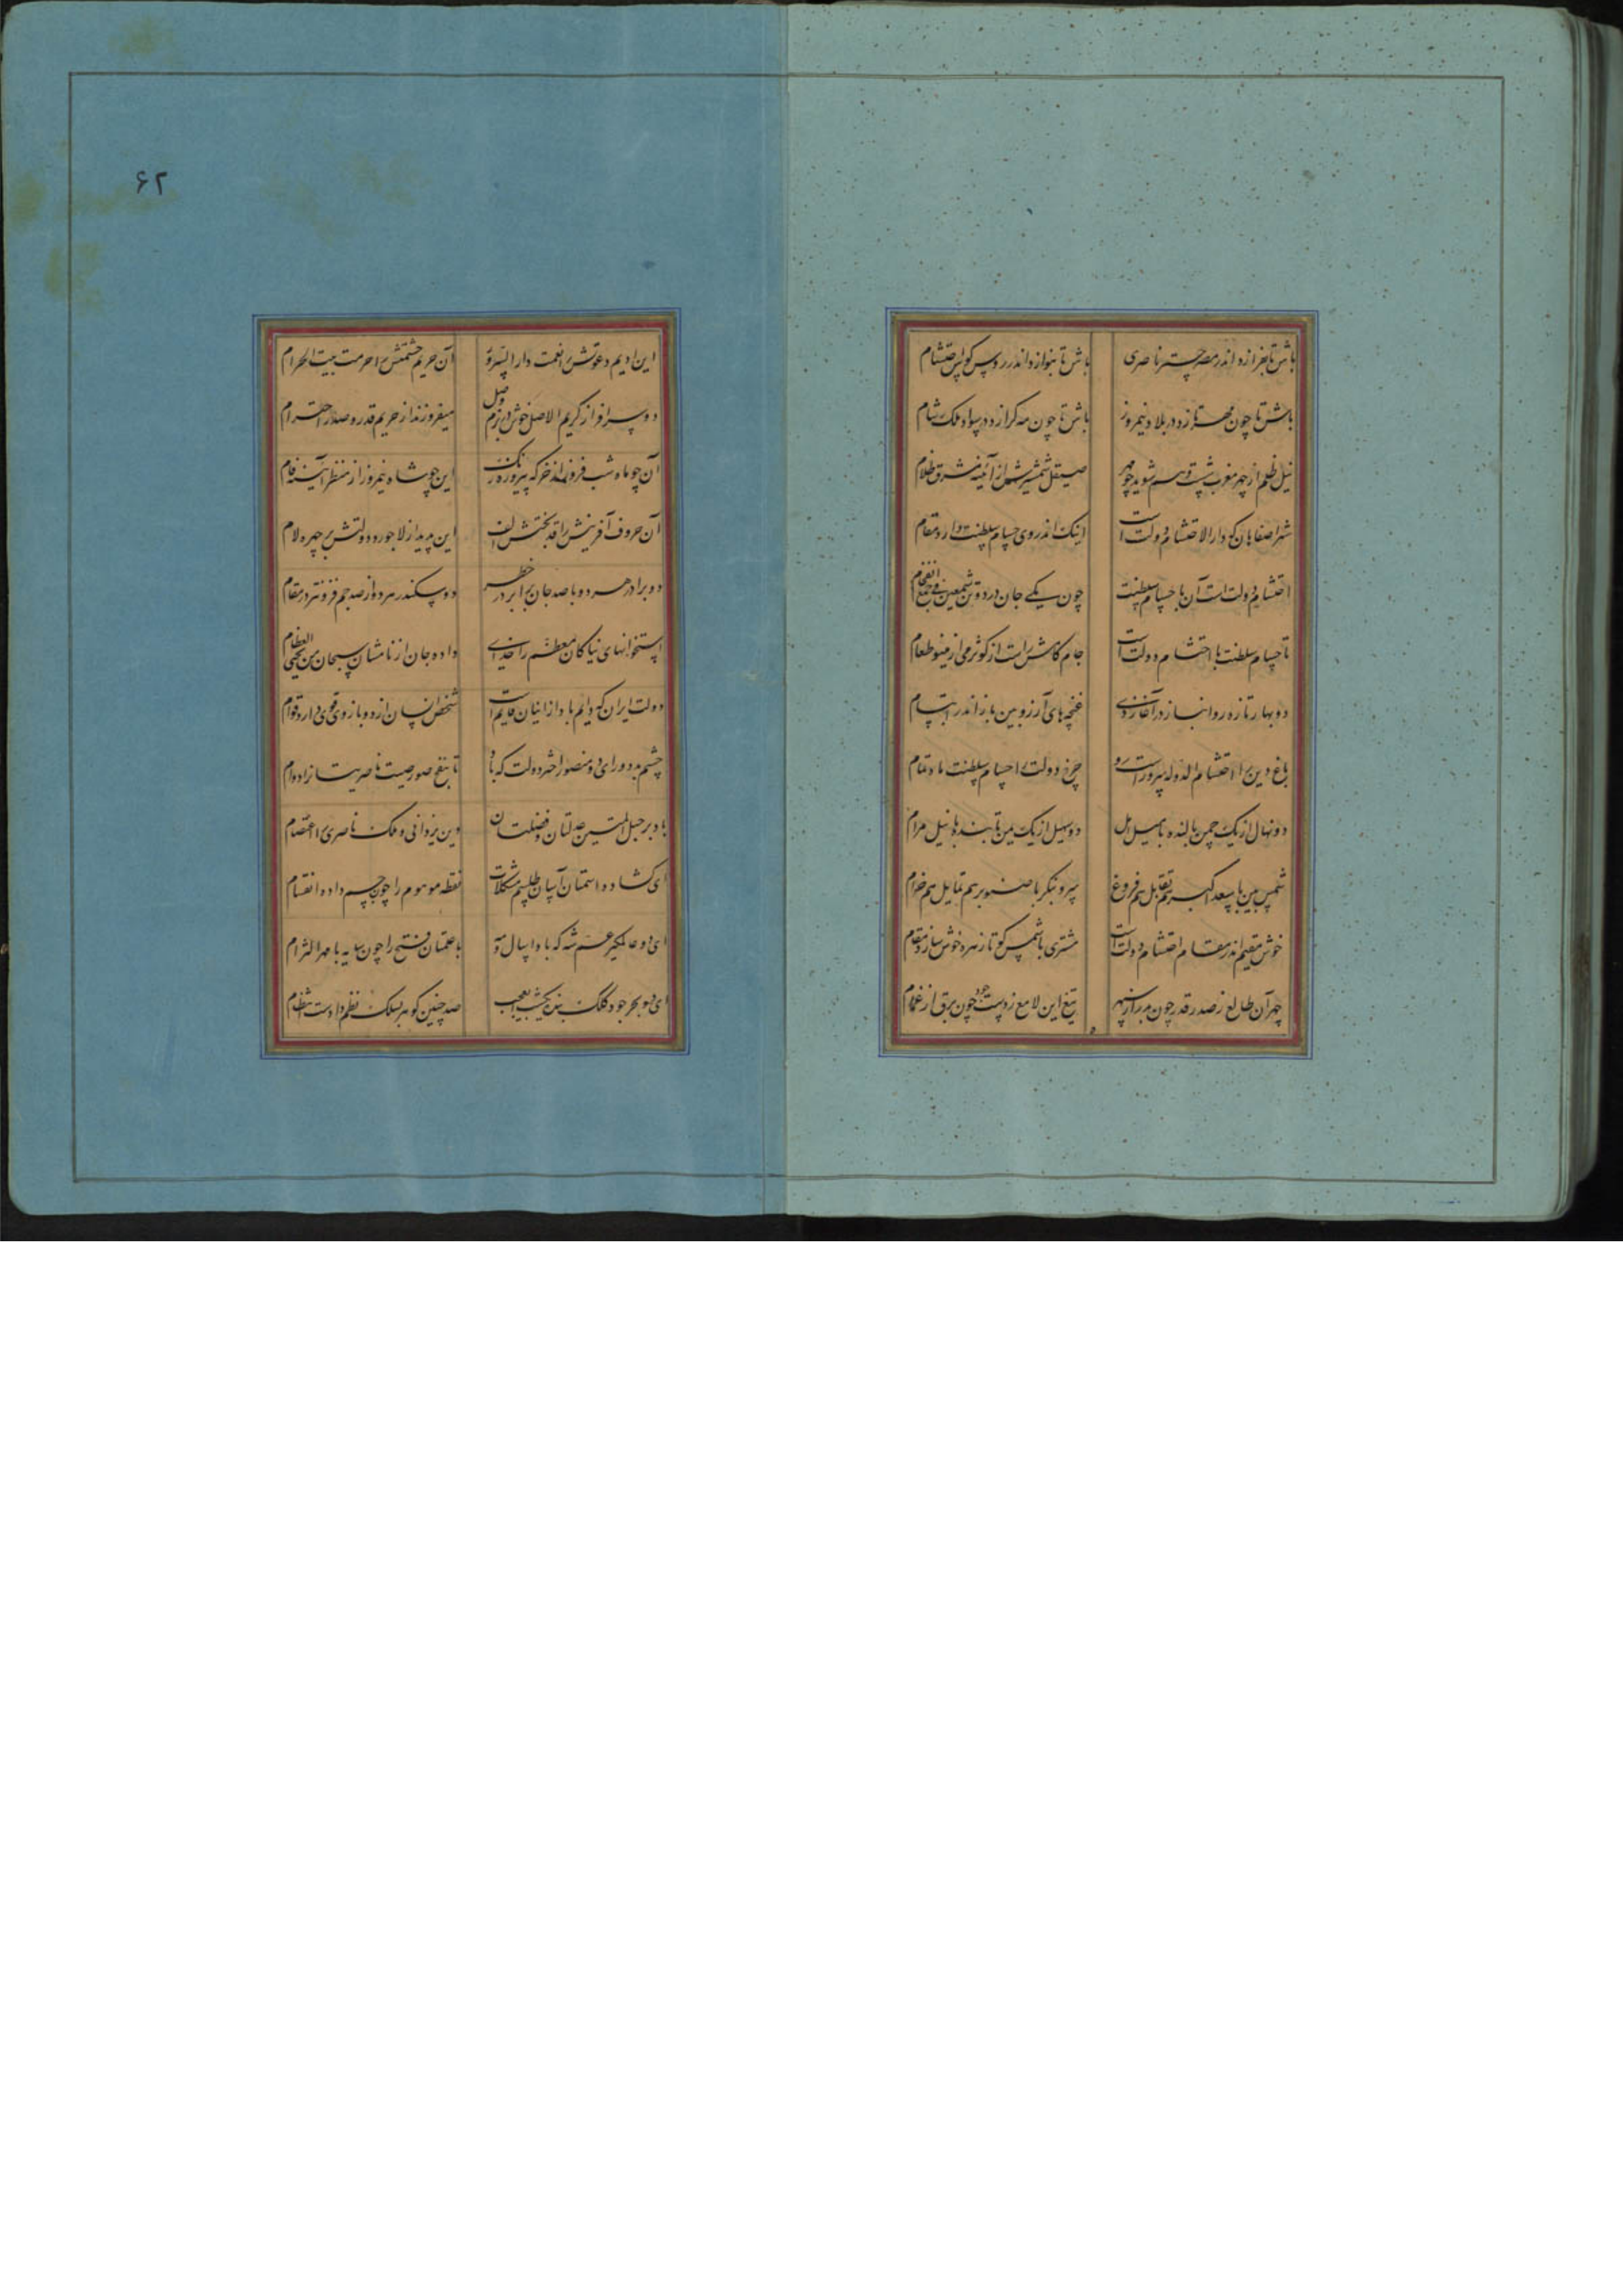 باش تا بفرازد اندر مصر چتر ناصری باش تا بنوازد اندر روس کوس احتشام
باش تا چون مه بتازد در بلاد نیمروز باش تا چون مه گرازد در سواد ملک شام
نیل ظلم از چهر مغرب شوید چو مهر صیقل شمشیرش از آئینه مشرق ظلام
شهر اصفاهان که دار الاحتشام دولت است اینک اندر وی حسام سلطنت دارد مقام
احتشام دولت است آن با حسام سلطنت چون یکی جان در دو تن
تا حسام سلطنت با احتشام دولت است جام کامش است از کوثر می از مینو طعام
دو بهار تازه رو انباز در آغاز دی غنچه های آرزو بین باز اندر ابتسام
باغ دین را احتشام الدوله سرو چرخ دولت را حسام سلطنت ماه تمام
دو نهال از یک چمن بالنده با میل امل دو سهیل از یک یمن تابنده با نیل مرام
شمس بین با سعد اکبر هم تقابل هم فروغ سرو بنگر با صنوبر هم تمایل هم خرام
خوش مقیم اندر مقام احتشام دولت است مشتری با شمس کو تا زهره خوش سازد مقام
چهر آن طالع ز صدر قدر چون مهر از سپهر تیغ این لامع ز دست جود چون برق از غمام
۶۲
این ادیم دعوتش را نعمت دار السرور آن حریم حشمتش را حرمت بیت الحرام
دو سرافراز کریم الاصل خوش در بزم وصل میفروزند از حریم قدر و صدر احترام
آن چو ماه شب فروزنده ز خرگه پیروزه رنگ این چو شاه نیمروز از منظر آئینه فام
آن حروف آفرینش را قد بختش الف این پدید از لاجورد دولتش بر چهره لام
دو برادر هر دو با صد جان برابر در خطر دو سکندر هر دو از صد جم فزونتر در مقام
استخوانهای نیاکان معظم را خدای داده جان از نامشان سبحان من یحیی العظام
دولت ایران که دایم باد از اینان قایم است شخص انسان از دو بازوی قوی دارد قوام
چشم بد دور ای دو منصور اختر دولت که باد تا بنفخ صور صیت ناصریتان را دوام
باد بر حبل المتین عدلتان و فضلتان دین یزدانی و ملک ناصری را اعتصام
ای گشاده استمتان آسان طلسم مشکلات نقطه موهوم را چون جسم داده انقسام
ای دو عالمگیر عم شه که باد ا سال و مه با علمتان فتح را چون سایه با مهر التزام
ای دو بحر جود کلک بنده صد چنین گوهر بسلک نظم داد است انتظام